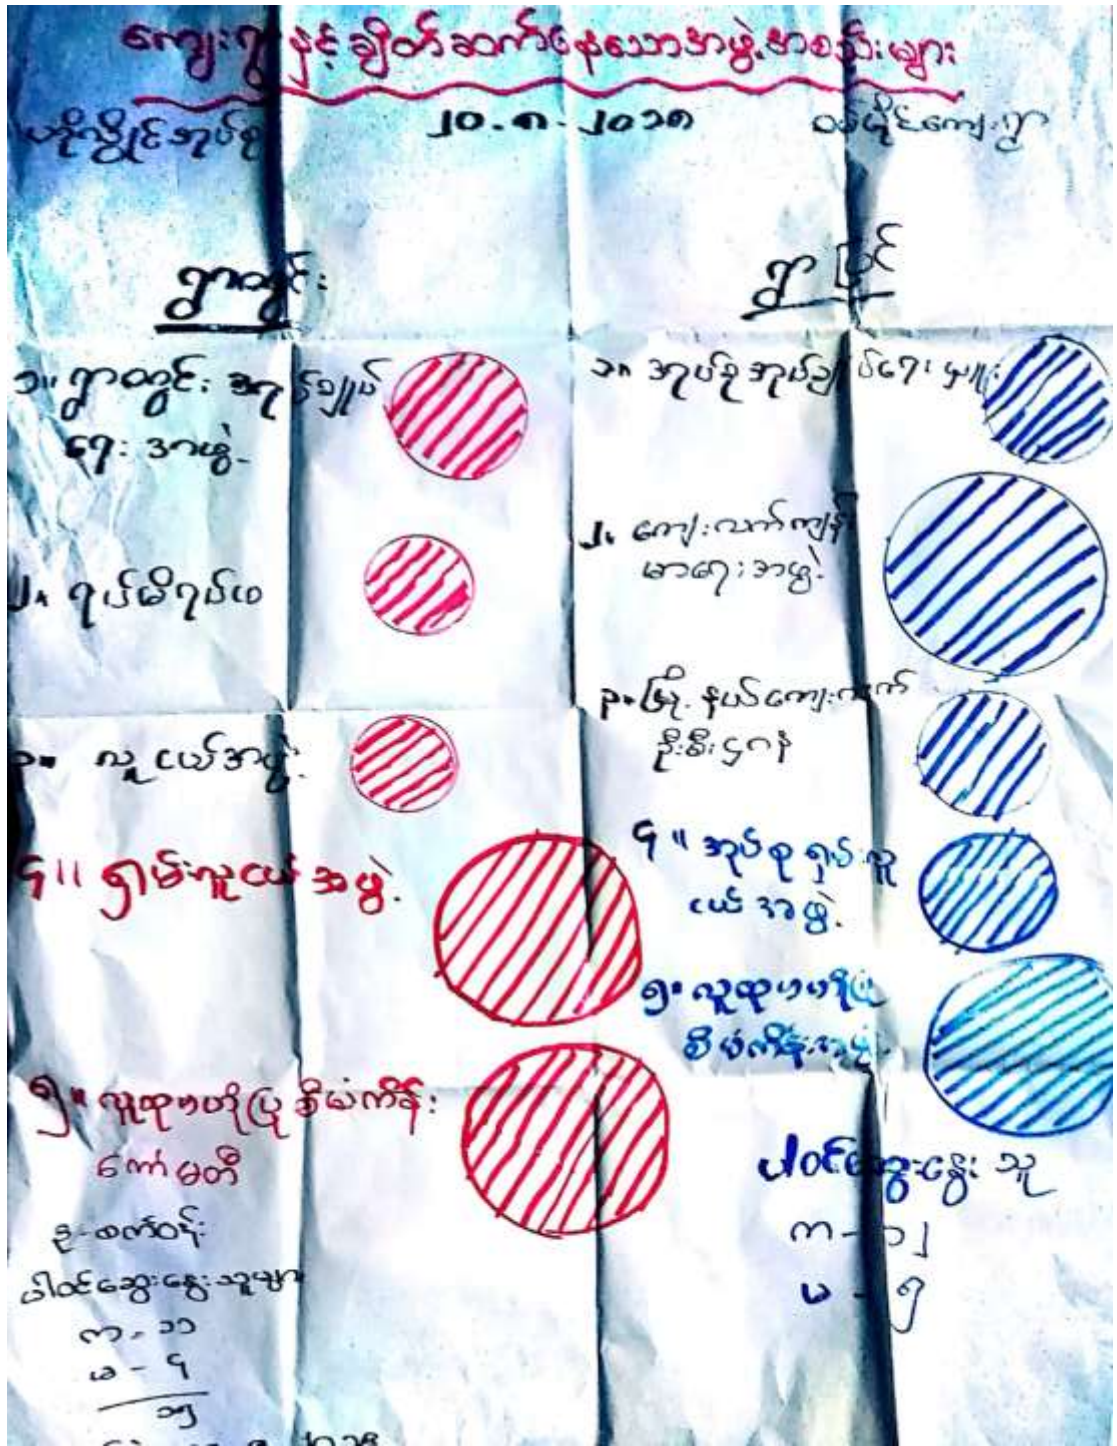 ကျေးရွာနှင့်ချိတ်ဆက်နေသောအဖွဲ့အစည်းများ
ဟိုလှိုင်အုပ်စု ၂၀.၈.၂၀၁၈ ဝမ်ပိုင်ကျေးရွာ
ရွာတွင်း
ရွာပြင်
၁။ ရွာတွင်း အုပ်ချုပ်
ရေး အဖွဲ့
၂။ ရပ်မိရပ်ဖ
၃။ လူငယ်အဖွဲ့
၄။ ရှမ်းလူငယ်အဖွဲ့
၅။ လူထုဗဟိုပြုစီမံကိန်း
ကော်မတီ
ဦး-စက်ဝန်း
ပါဝင်ဆွေးနွေးသူများ
က-၁၁
မ-၄
၁၅
၁။ အုပ်စုအုပ်ချုပ်ရေးမှူး
၂။ ကျေးလက်ကျန်း
မာရေးအဖွဲ့
၃။ မြို့နယ်ကျေးလက်
ဦးစီးဌာန
၄။ အုပ်စုရှမ်းလူ
ငယ်အဖွဲ့
၅။ လူထုဗဟိုပြု
စီမံကိန်းအဖွဲ့
ပါဝင်ဆွေးနွေးသူ
က-၁၂
မ-၅